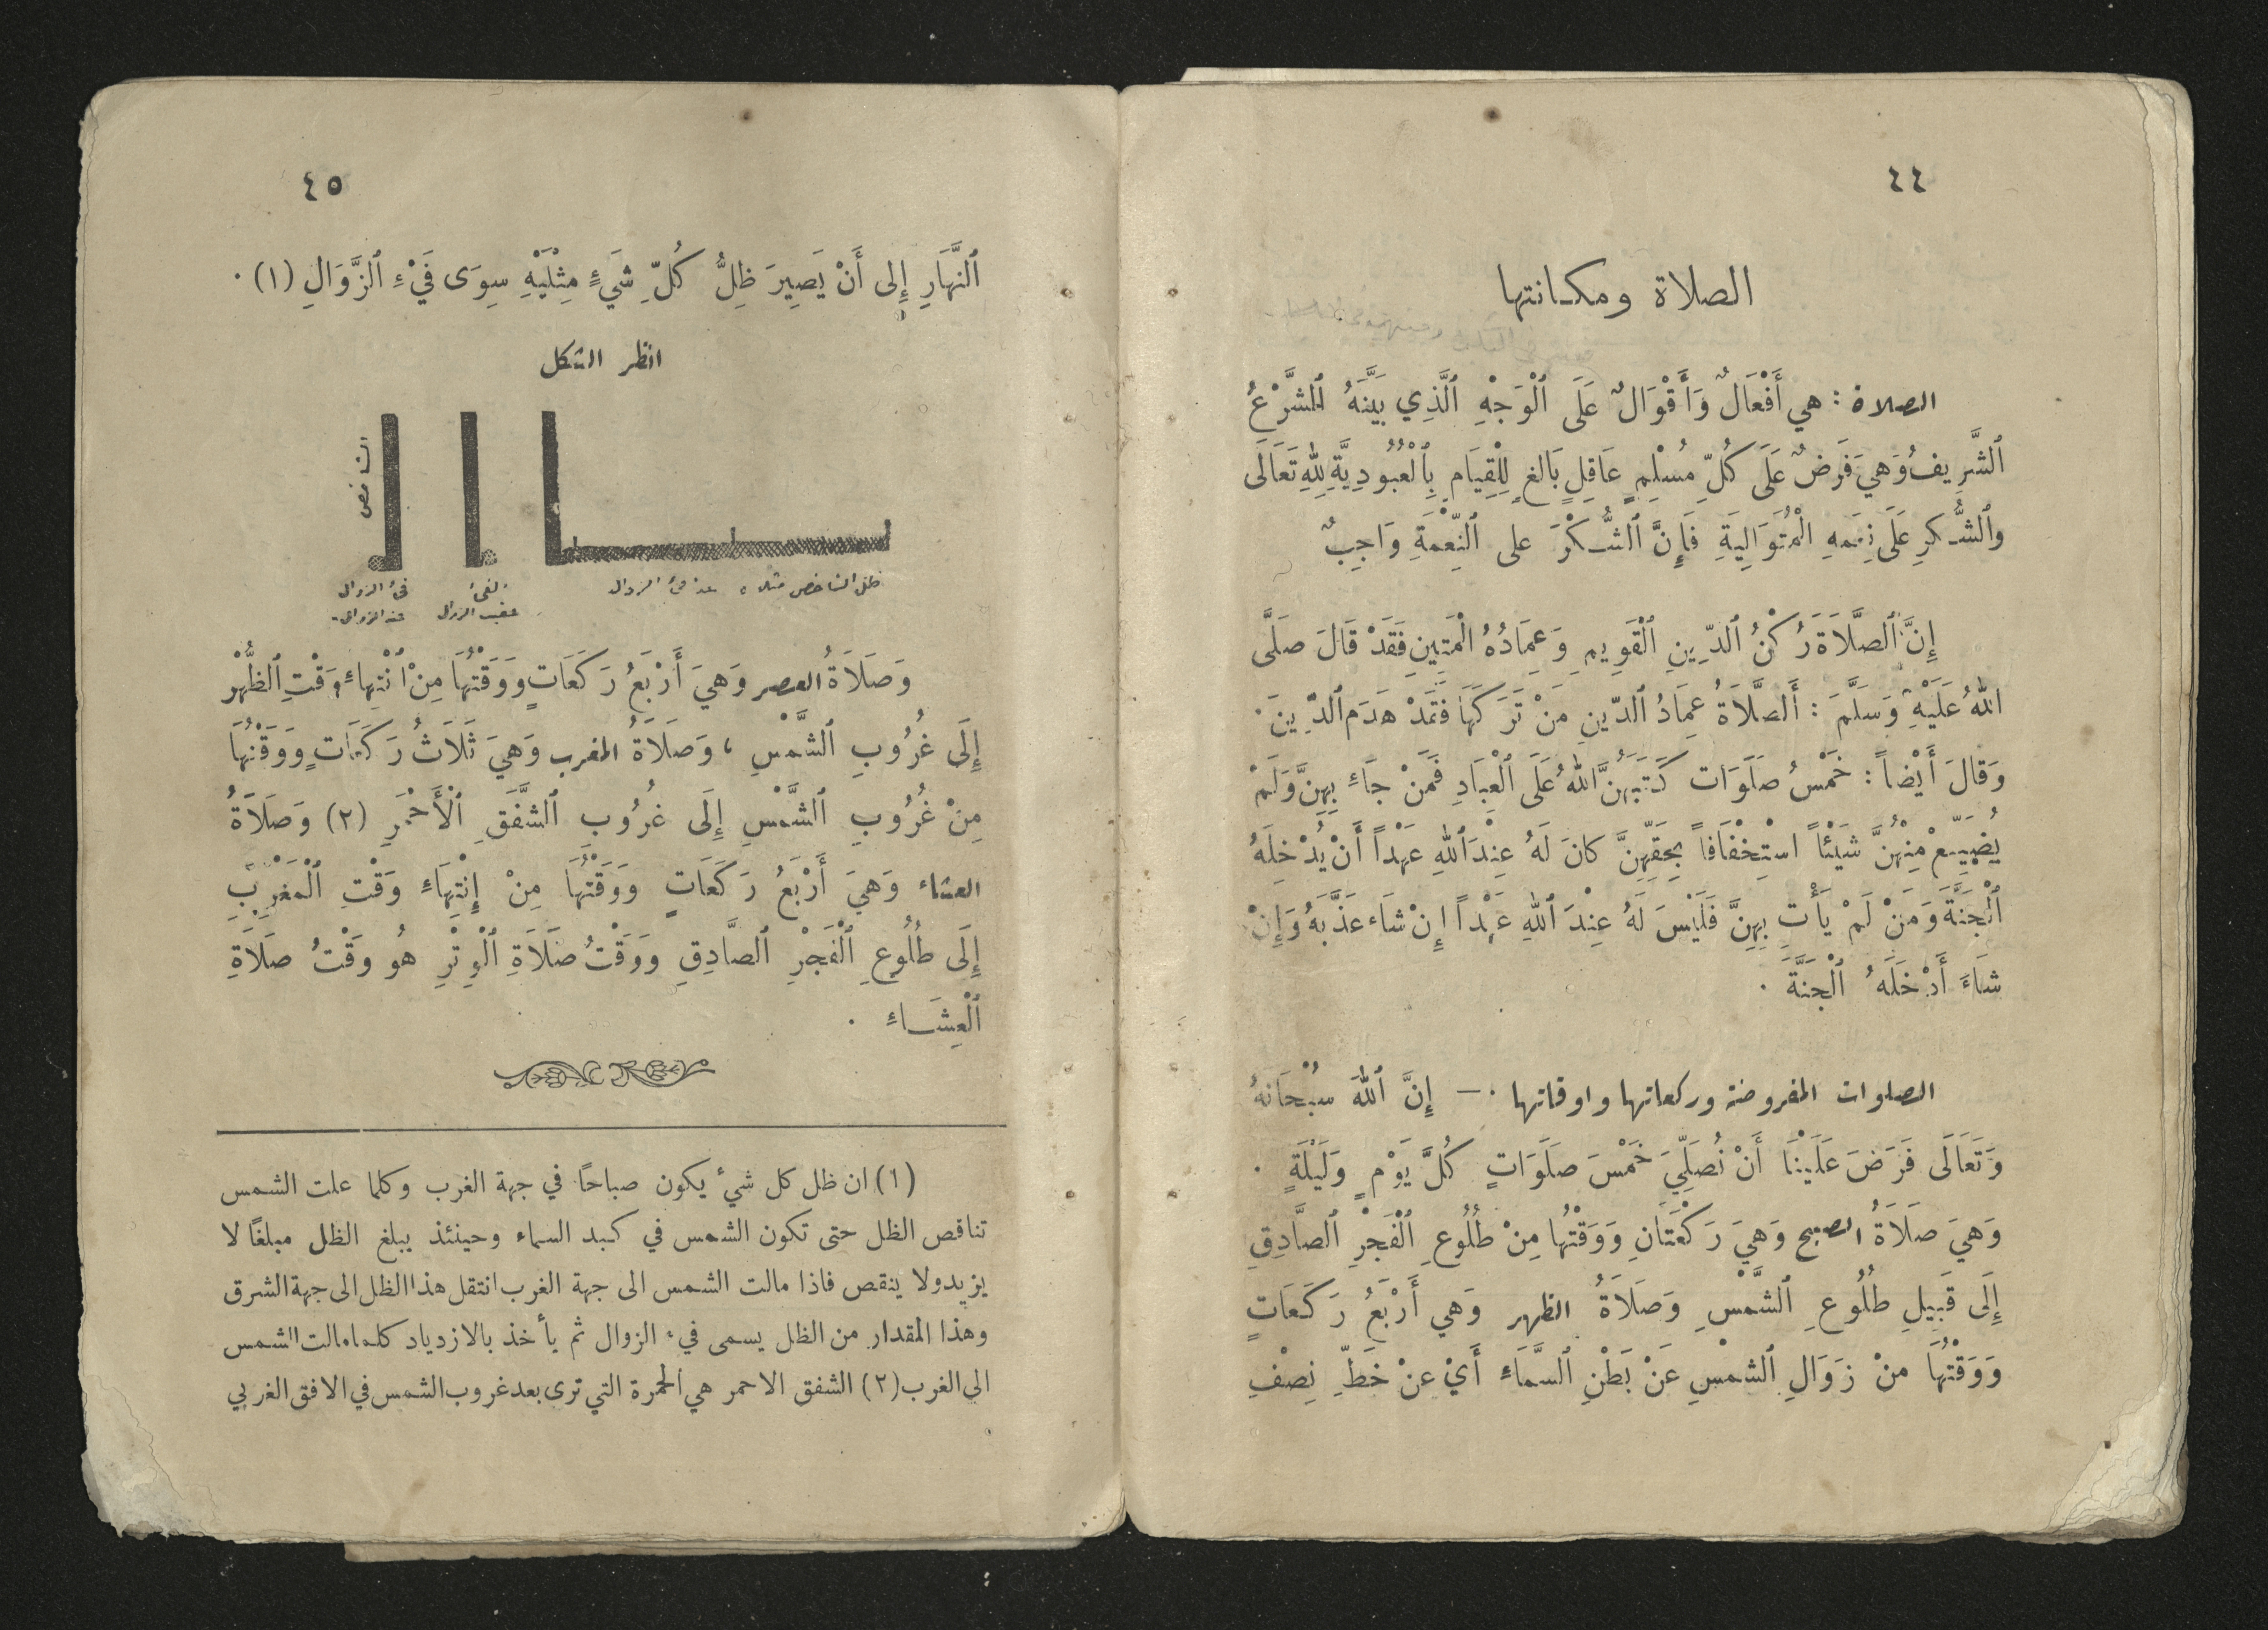 ٤٤
الصلاة ومكانتها
الصلاة : هي أَفْعَالٌ وَأَقْوَالٌ عَلَى ٱلْوَجْهِ ٱلَّذِي بَيَّنَهُ ٱلشَّرْعُ
ٱلشَّرِيفُ وَهِيَ فَرَضٌ عَلَى كُلِّ مُسْلِمٍ عَاقِلٍ بَالغٍ لِلْقِيَامِ بِٱلْعُبُودِيَّةِ لِلهِ تَعَالَى
وٱلشُّكرِ عَلَى نِعَمِهِ الْمُتَوَالِيَةِ فَإِنَّ ٱلشُّكْرَ على ٱلنِّعْمَةِ وَاجِبٌ
إِنَّ ٱلصَّلَاةَ رُكْنُ ٱلدِّينِ ٱلْقَوِيمِ وَعِمَادُهُ الْمَتِينِ فَقَدْ قَالَ صَلَّى
اللهُ عَلَيْهِ وَسَلَّمَ : أَلصَّلَاةُ عِمَادُ ٱلدّينِ مَنْ تَرَكَهَا فَقَدْ هدَم ٱلدِّينَ .
وَقالَ أَيْضاً : خَمْسُ صَلَوَات كَتَبَهُنَّ اللهُ عَلَى ٱلْعِبَادِ فَمَنْ جَاءَ بِهِنَّ وَلَمْ
يُضَيِّعْ مِنْهُنَّ شَيْئاً اسْتِخْفَافاً بِحَقِّهِنَّ كانَ لَهُ عِنْدَ ٱللهِ عَهْداً أَنْ يُدْخِلَهُ
ٱلْجَنَّةَ وَمَنْ لَمْ يَأْتِ بِهِنَّ فَلَيْسَ لَهُ عِنْدَ ٱللهِ عَهْداً إِنْ شَاءَ عَذَّبَهُ وَإِنْ
شَاءَ أَدْخَلَهُ ٱلْجَنَّةَ .
الصلوات المفروضة وركعاتها واوقاتها . — إِنَّ ٱللهَ سُبْحَانَهُ
وَتَعَالَى فَرَضَ عَلَيْنَا أَنْ نُصَلِّيَ خَمْسَ صَلَوَاتٍ كُلَّ يَوْمٍ وَلَيْلَةٍ .
وَهِيَ صَلَاةُ الصبح وَهِيَ رَكْعَتَانِ وَوَقْتُهَا مِنْ طُلُوعِ ٱلْفَجْرِ ٱلصَّادِقِ
إِلَى قَبِيلِ طُلُوعِ ٱلشَّمْسِ وَصَلَاةُ الظهر وَهي أَرْبَعُ رَكَعَاتٍ
وَوَقْتُهَا مِنْ زَوَالِ ٱلشمْسِ عَنْ بَطْنِ ٱلسَّمَاءِ أَيْ عنْ خَطِّ نِصْفِ
٤٥
ٱلنَّهَارِ إِلى أَنْ يَصِيرَ ظِلُّ كُلِّ شَيْءٍ مِثْلَيْهِ سِوَى فَيْءِ ٱلزَّوَالِ (١) .
انظر الشكل
الشاخص
ظل الشاخص مثلاه عدا فيء الزوال
الفيء
عقيب الزوال
فيء الزوال
عند الزوال
وَصَلَاةُ العصر وَهيَ أَرْبَعُ رَكَعَاتٍ وَوَقْتُهَا مِنْ ٱنْتِهاءَ وَقْتِ ٱلظُّهْر
إِلَى غُرُوبِ ٱلشَّمْسِ ، وَصَلَاةُ المغرب وَهيَ ثَلَاثُ رَكَعَاتٍ وَوَقْتُهَا
مِنْ غُرُوبِ ٱلشَّمْسِ إِلَى غُرُوبِ ٱلشَّفَقِ ٱلْأَحْمَرِ (٢) وَصَلَاةُ
العشاء وَهيَ أَرْبَعُ رَكَعَاتٍ وَوَقْتُهَا مِنْ إِنْتِهَاءِ وَقْتِ ٱلْمَغْرِبِ
إِلَى طُلُوعِ ٱلْفَجْرِ ٱلصَّادِقِ وَوَقْتُ صَلَاةِ ٱلْوِتْرِ هُو وَقْتُ صَلَاةِ
ٱلْعِشَاءِ .
(١) ان ظل كل شيء يكون صباحاً في جهة الغرب وكلما علت الشمس
تناقص الظل حتى تكون الشمس في كبد السماء وحينئذ يبلغ الظل مبلغًا لا
يزيد ولا ينقص فاذا مالت الشمس الى جهة الغرب انتقل هذا الظل الى جهة الشرق
وهذا المقدار من الظل يسمى فيء الزوال ثم يأخذ بالازدياد كلما مالت الشمس
الى الغرب (٢) الشفق الاحمر هي الحمرة التي ترى بعد غروب الشمس في الافق الغربي